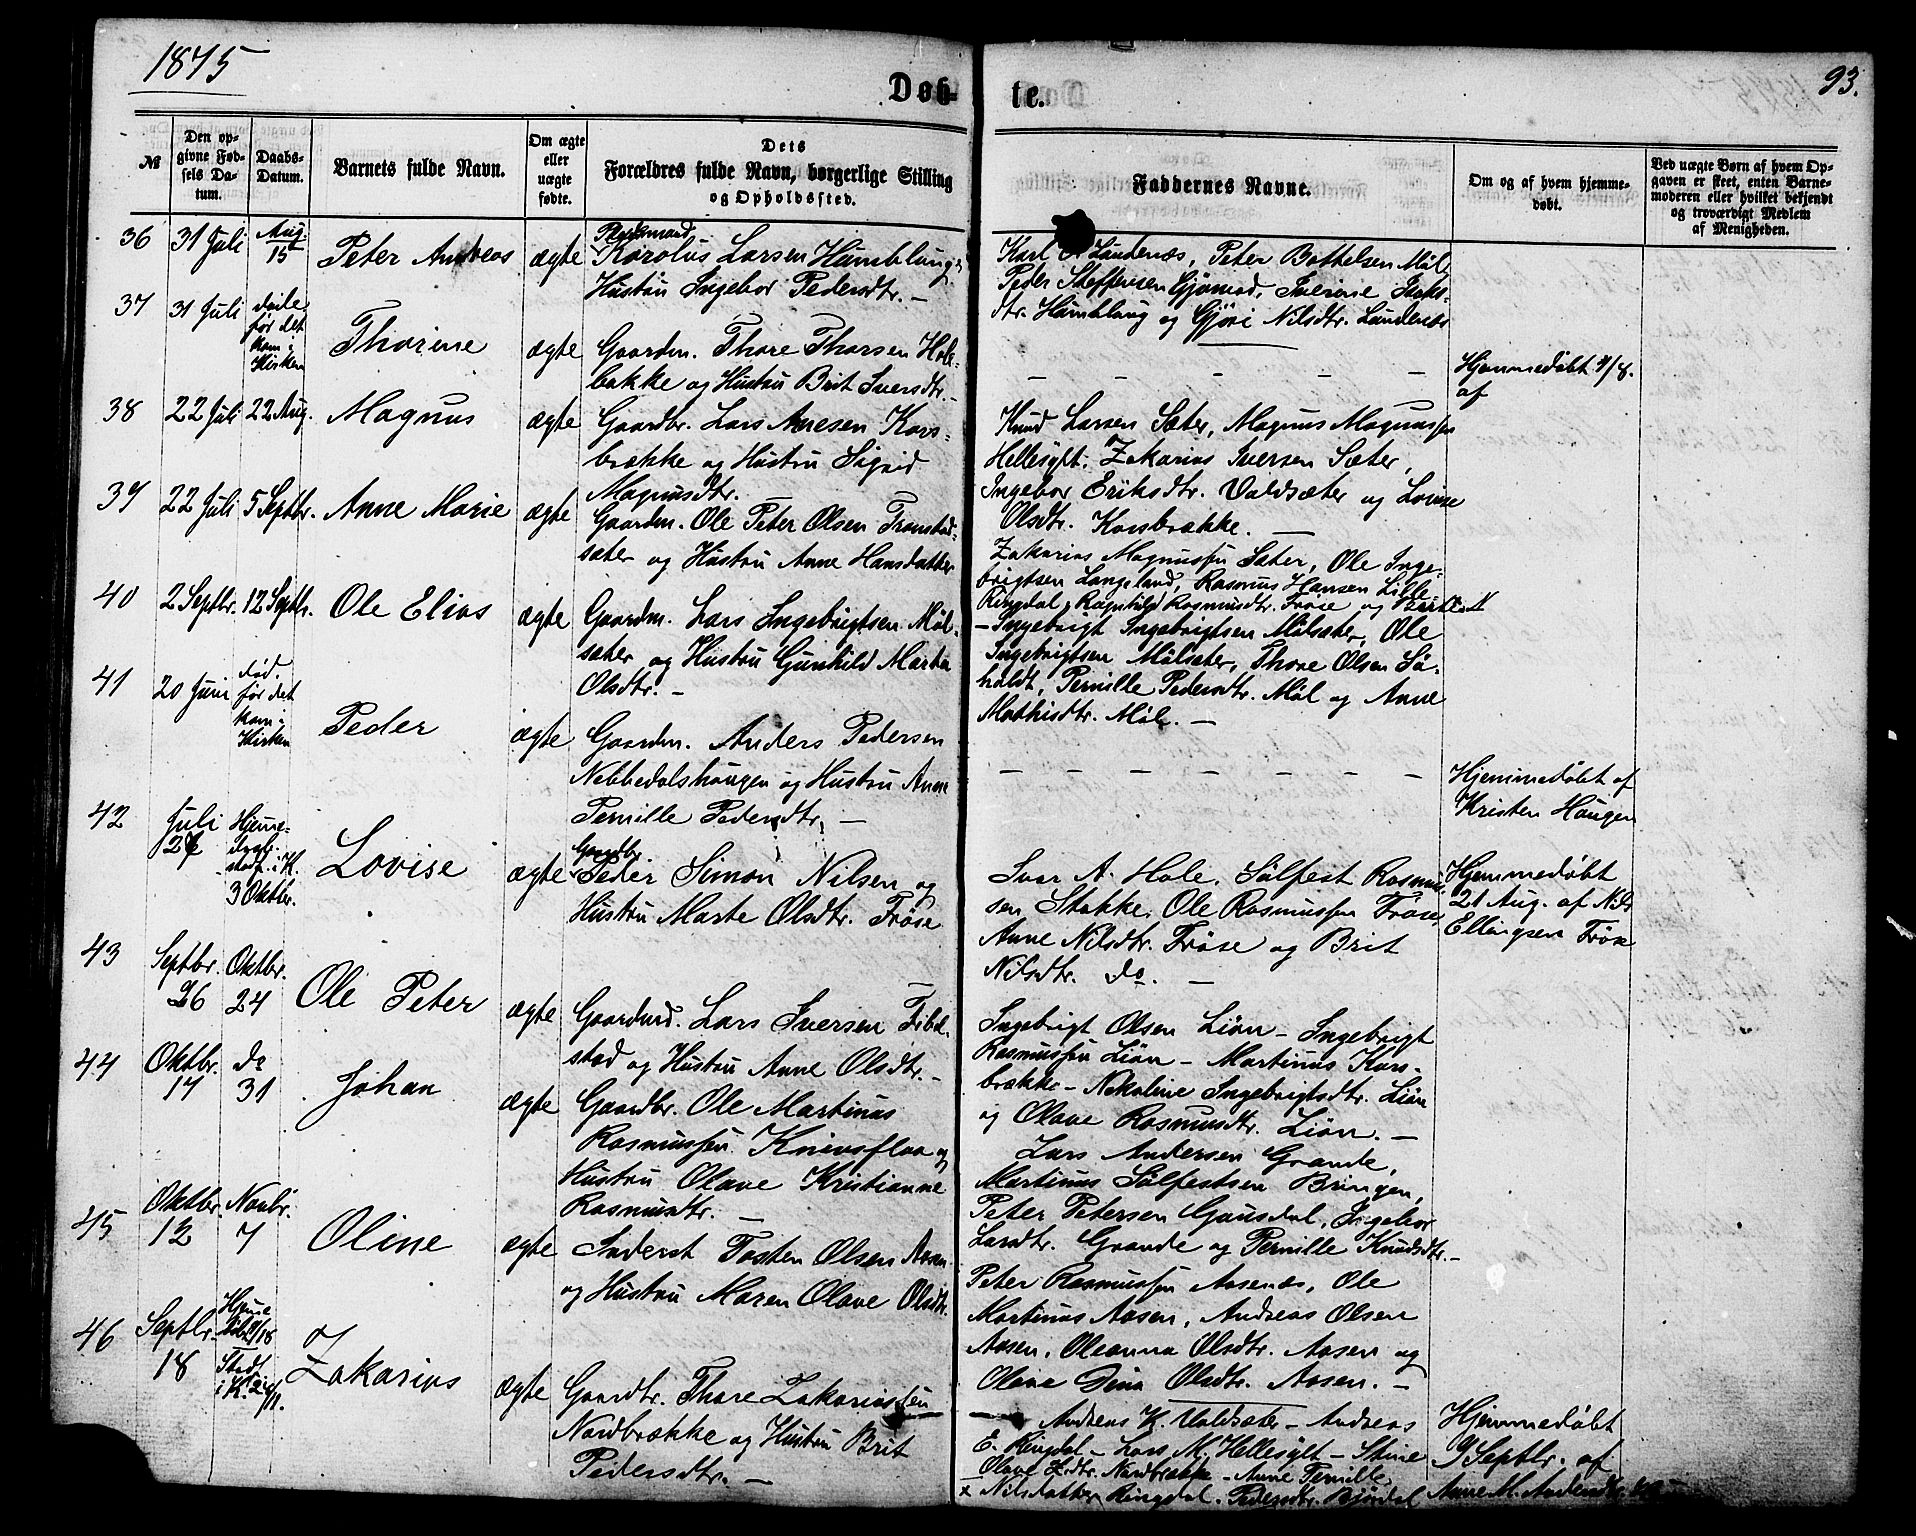 1875
93.
Døb-
te.
№
Den op-
givne Fød-
sels Da-
tum.
Daabs-
Datum.
Barnets fulde Navn.
Om ægte
eller
uægte
fødte.
Dets
Forældres fulde Navn, borgerlige Stilling
og Opholdssted.
Faddernes Navne.
Om og af hvem hjemme-
døbt.
Ved uægte Børn af hvem Op-
gaven er skeet, enten Barne-
moderen eller hvilket bekjendt
og troværdigt Medlem
af Menigheden.
36 31 Juli Aug. 15 Peter Andreas ægte
Karolus Larsen
Hustru Ingebor Pedersdtr. —
Karl Landenæs, Peter Bottelsen
Peder Steffensen
dtr. og Gjøri Nilsdtr. Landenæs
37 31 Juli døde før det kom i Kirken Thorine ægte
Gaardm. Thore Thorsen Hole-
bakke og Hustru Brit Iversdtr.
— — — — —
Hjemmedøbt /8.
af
38 22 Juli 22 Aug. Magnus ægte
Gaardbr. Lars Korsbrække og Hustru Sigrid
Magnusdtr.
Knud Larsen Sæter, Magnus Magnussen
Hellesylt, Zakarias Iversen Sæter,
Ingebor Eriksdtr. Valdsæter og Lovise
Olsdtr. Korsbrække. —
39 22 Juli 5 Septbr. Anne Marie ægte
Gaardm. Ole Peter Olsen Tronstad-
sæter og Hustru Anne Hansdatter
Zakarias Magnussen Sæter, Ole Inge-
brigtsen Langeland, Rasmus Hansen Lille
Ringdal, Ragnhild Rasmusdtr. Frøse og
40 2 Septbr. 12 Septbr. Ole Elias ægte
Gaardm. Lars Ingebrigtsen Møl-
sæter og Hustru Gunhild Marta
Olsdtr. —
— Ingebrigt Ingebrigtsen Mølsæter, Ole
Ingebrigtsen Mølsæter, Thore Olsen Sø-
holdt, Pernille Pedersdtr. Møl og Anne
Mathisdtr. Møl. —
41 20 Juni død før det kom i Kirken Peder ægte
Gaardm. Anders Pedersen
Nebbedalshaugen og Hustru Anne
Pernille Pedersdtr. —
— — — — — — —
Hjemmedøbt af
Kristen Haugen
42 Juli Hjemme- 3 Oktbr. Lovise ægte
Gaardbr.
Peder Simon Nilsen og
Hustru Marte Olsdtr. Frøse
Ivar A. Hole, Sølfest Rasmus-
sen Stokke, Ole Rasmussen Frøse,
Anne Nilsdtr. Frøse og Brit
Nilsdtr. do. —
Hjemmedøbt
21 Aug. af Nils
Ellingsen Frøse
43 Septbr. 26 Oktbr. 24 Ole Peter ægte
Lars Iversen Fibel-
stad og Hustru Anne Olsdtr. —
Ingebrigt Olsen Liøn — Ingebrigt
Rasmussen Liøn — Martinus Kors-
brække — Nekoline Ingebrigtsdtr. Liøn
og Olave Rasmusdtr. Liøn. —
44 Oktbr. 17 do 31 Johan ægte
Gaardbr. Ole Martinus
Rasmussen Knivsflaa og
Hustru Olave Kristianne
Rasmusdtr. —
Lars Andersen Grande,
Martinus Sølfestsen Bringen,
Peter Petersen Gausdal, Ingebor
Larsdtr. Grande og Pernille Knudsdtr. —
45 Oktbr. 12 Novbr. 7 Oline ægte
Inderst Tosten Olsen Aasen
og Hustru Maren Olave Olsdtr.
Peter Rasmussen Aasenæs, Ole
Martinus Aasen, Andreas Olsen
Aasen, Oleanna Olsdtr. Aasen og
Olave Dina Olsdtr. Aasen. —
46 Septbr. 18 Stadf. i K. Zakarias ægte
Gaardbr. Thore Zakariassen
Nordbrække og Hustru Brit
Pedersdtr. —
Andreas K. Valdsæter — Andreas
E. Ringdal — Lars M. Hellesylt — Stine
Olave dtr. Nordbrække — Anne Pernille
× Nilsdatter Ringdal. Pedersdtr. Bjørdal
Hjemmedøbt
9 Septbr. af
Anne M. Andersdtr.